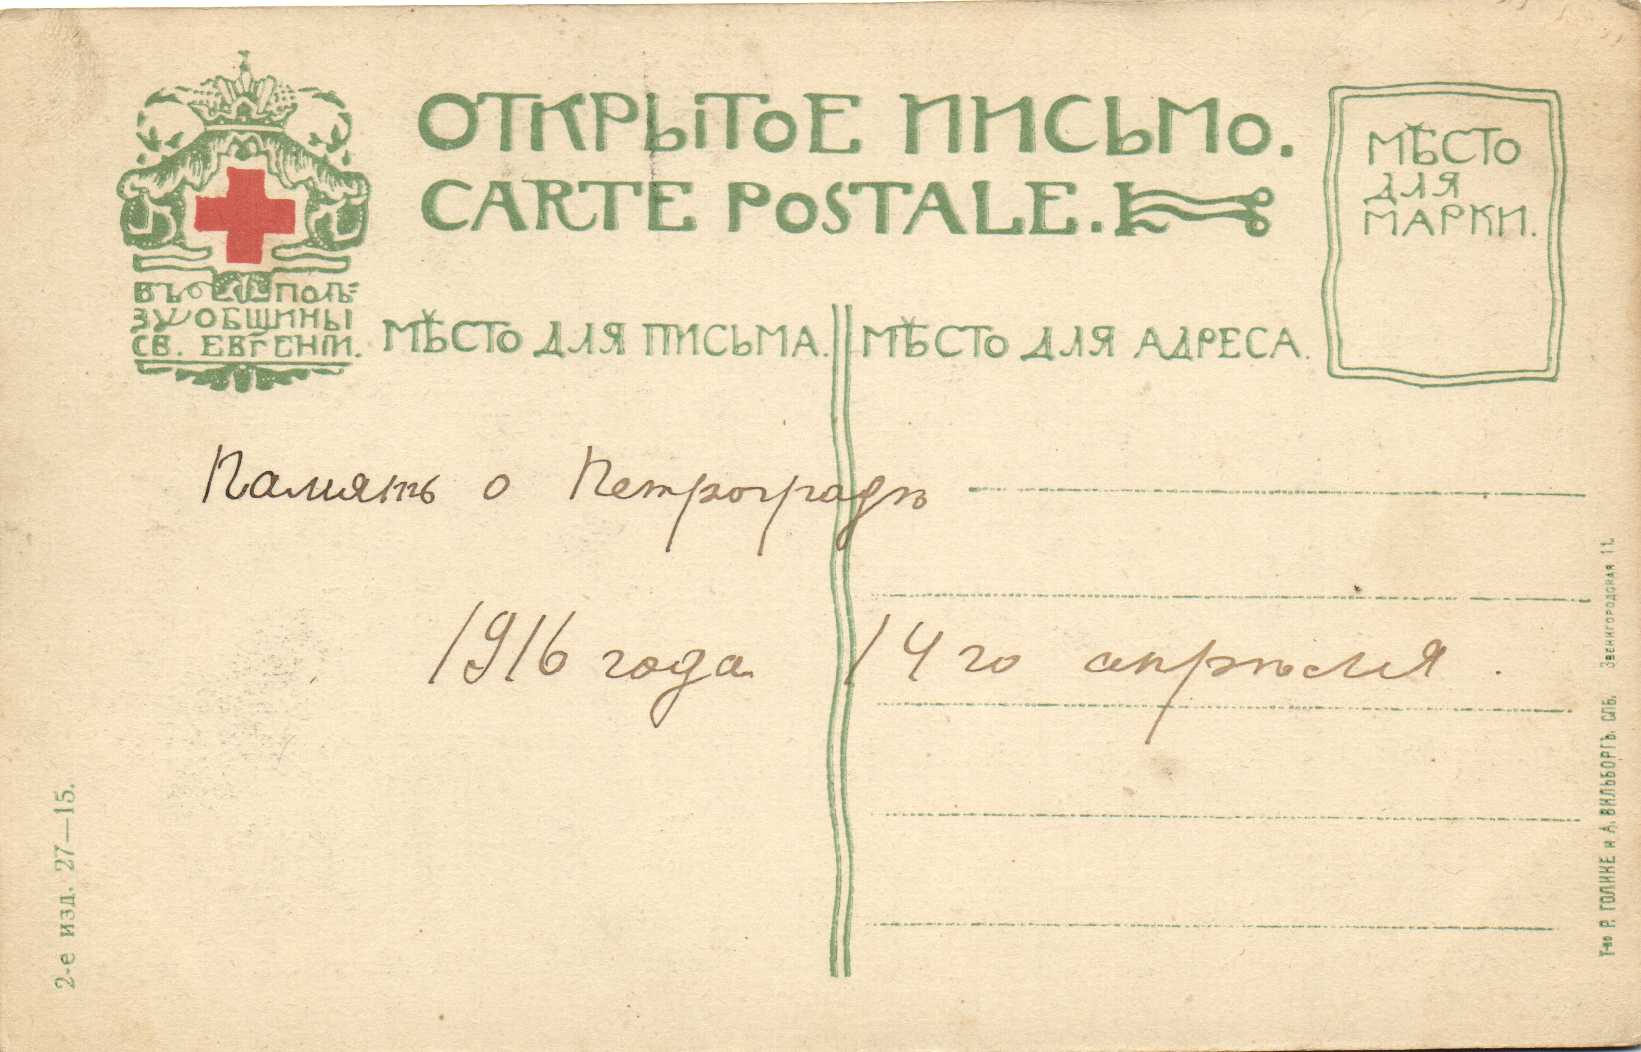 ОТКРЫТОЕ ПИСЬМО.
CARTE POSTALE.
МѢСТО
ДЛЯ
МАРКИ.
ВЪ ПОЛЬ=
ЗУ ОБЩИНЫ
СВ. ЕВГЕНІИ.
МѢСТО ДЛЯ ПИСЬМА.
МѢСТО ДЛЯ АДРЕСА.
Память о Петроградѣ
1916 года 14го апрѣля.
2-е изд. 27—15.
Т-во Р. ГОЛИКЕ и А. ВИЛЬБОРГЪ. СПБ. ЗВЕНИГОРОДСКАЯ 11.